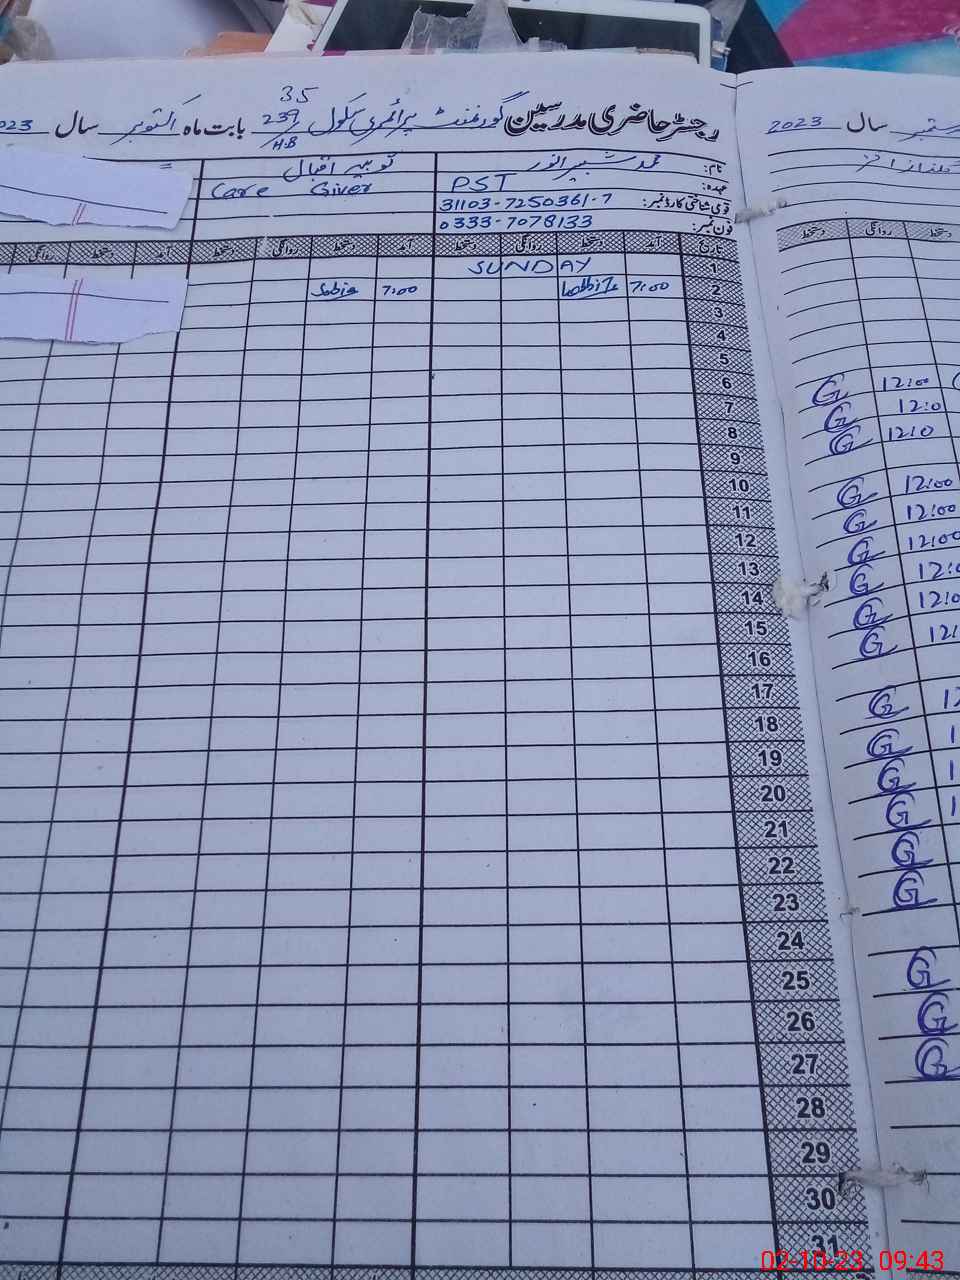 رجسٹر حاضری مدرسین گورنمنٹ پرائمری سکول 35 239/HB بابت ماہ اکتوبر سال 2023
نام: محمد شبیر انور
عہدہ: PST
قومی شناختی کارڈ نمبر: 31103-7250361-7
فون نمبر: 0333-7078133
ثوبیہ اقبال
Care Giver
تاریخ آمد دستخط روانگی دستخط آمد دستخط روانگی دستخط آمد دستخط روانگی
1 SUNDAY
2 7:00 7:00 Sobia
3
4
5
6
7
8
9
10
11
12
13
14
15
16
17
18
19
20
21
22
23
24
25
26
27
28
29
30
31
ستمبر سال 2023
دستخط روانگی دستخط
12:00 G
12:0 G
12:0 G
12:00 G
12:00 G
12:00 G
12:0 G
12:0 G
12: G
12 G
1 G
1 G
1 G
G
G
G
G
G
02-10-23 09:43